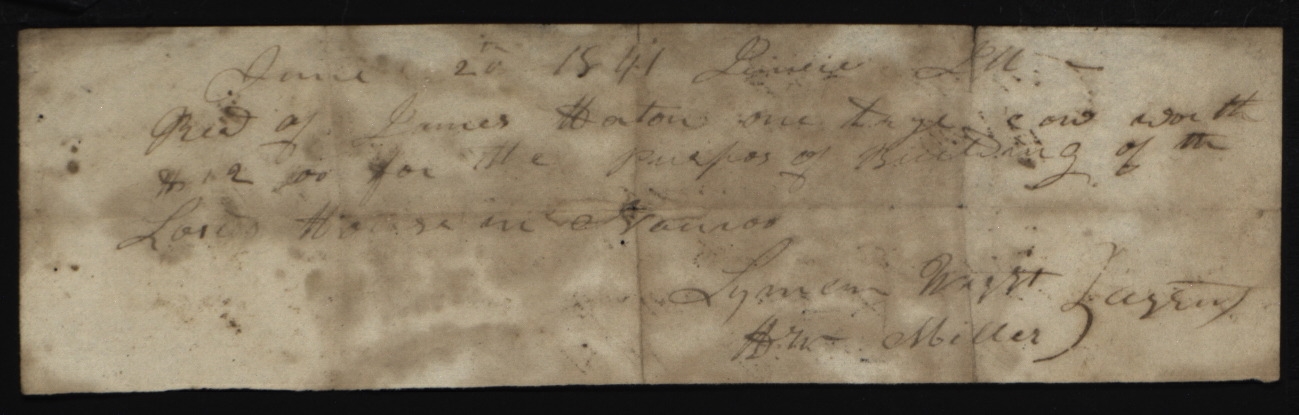 June 20 1841 Ill
Recd of James Haton one cow worth
$12 00 for the purpos of Building of the
Lords House in Nauvoo
Lyman Wight
H W Miller